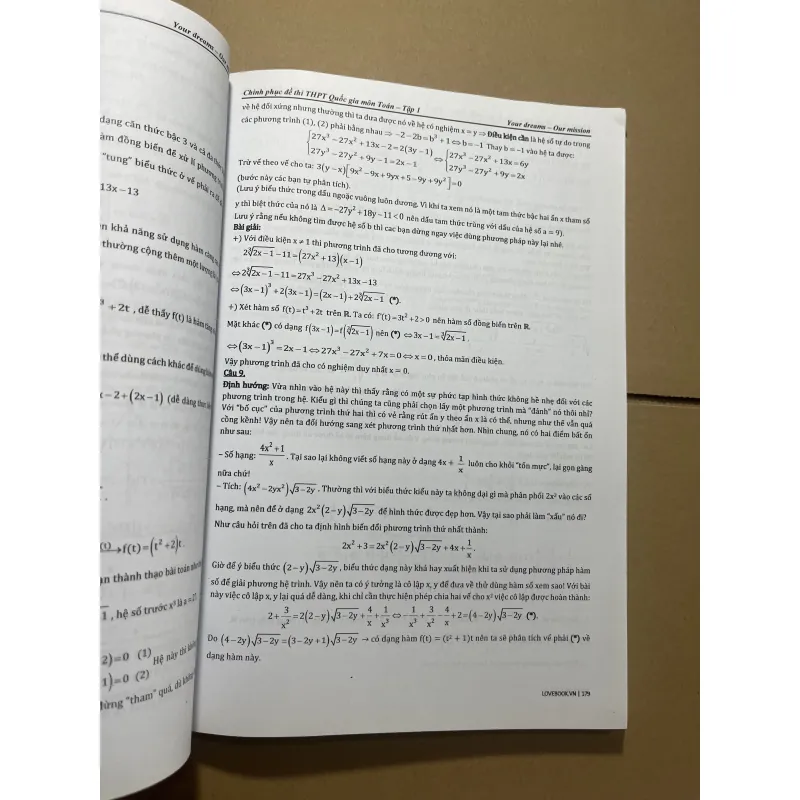 Your dreams – Our
dạng căn thức bậc 3 và cả đa thức
àm đồng biến để xử lí phương
"tung" biểu thức ở vế phải ra
13x−13
n khả năng sử dụng hàm
thường cộng thêm một lượng
+ 2t , dễ thấy f(t) là hàm
thể dùng cách khác để
x−2+(2x−1) (dễ dàng
(1)→f(t)=(t²+2)t.
n thành thạo bài toán
, hệ số trước x³ là a = 27.
2)=0 (1)
Hệ này thì
1)=0 (2)
đừng "tham" quá, dễ
Chinh phục đề thi THPT Quốc gia môn Toán – Tập 1
Your dreams – Our mission
về hệ đối xứng nhưng thường thì ta đưa được nó về hệ có nghiệm x = y ⇒ Điều kiện cần là hệ số tự do trong
các phương trình (1), (2) phải bằng nhau ⇒ −2−2b=b³+1⇔b=−1 Thay b=−1 vào hệ ta được:
{27x³−27x²+13x−2=2(3y−1) ⇔ {27x³−27x²+13x=6y
{27y³−27y²+9y−1=2x−1 {27y³−27y²+9y=2x
Trừ vế theo vế cho ta: 3(y−x)[9x²−9x+9yx+5−9y+9y²]=0
(bước này các bạn tự phân tích).
(Lưu ý biểu thức trong dấu ngoặc vuông luôn dương. Vì khi ta xem nó là một tam thức bậc hai ẩn x tham số
y thì biệt thức của nó là Δ=−27y²+18y−11<0 nên dấu tam thức trùng với dấu của hệ số a = 9).
Lưu ý rằng nếu không tìm được hệ số b thì cac bạn dừng ngay việc dùng phương pháp này lại nhé.
Bài giải:
+) Với điều kiện x ≠ 1 thì phương trình đã cho tương đương với:
2∛2x−1−11=(27x²+13)(x−1)
⇔2∛2x−1−11=27x³−27x²+13x−13
⇔(3x−1)³+2(3x−1)=(2x−1)+2∛2x−1 (*).
+) Xét hàm số f(t)=t³+2t trên ℝ. Ta có: f'(t)=3t²+2>0 nên hàm số đồng biến trên ℝ.
Mặt khác (*) có dạng f(3x−1)=f(∛2x−1) nên (*) ⇔3x−1=∛2x−1.
⇔(3x−1)³=2x−1⇔27x³−27x²+7x=0⇔x=0, thỏa mãn điều kiện.
Vậy phương trình đã cho có nghiệm duy nhất x = 0.
Câu 9.
Định hướng: Vừa nhìn vào hệ này thì thấy rằng có một sự phức tạp hình thức không hề nhẹ đối với các
phương trình trong hệ. Kiểu gì thì chúng ta cũng phải chọn lấy một phương trình mà "đánh" nó thôi nhỉ?
Với "bố cục" của phương trình thứ hai thì có vẻ rằng rút ẩn y theo ẩn x là có thể, nhưng như thế vẫn quá
cồng kềnh! Vậy nên ta đổi hướng sang xét phương trình thứ nhất hơn. Nhìn chung, nó có hai điểm bất ổn
như sau:
– Số hạng: (4x²+1)/x . Tại sao lại không viết số hạng này ở dạng 4x + 1/x luôn cho khỏi "tốn mực", lại gọn gàng
nữa chứ!
– Tích: (4x²−2yx²)√3−2y . Thường thì với biểu thức kiểu này ta không dại gì mà phân phối 2x² vào các số
hạng, mà nên để ở dạng 2x²(2−y)√3−2y để hình thức được đẹp hơn. Vậy tại sao phải làm "xấu" nó đi?
Như câu hỏi trên đã cho ta định hình biến đổi phương trình thứ nhất thành:
2x²+3=2x²(2−y)√3−2y+4x+1/x.
Giờ để ý biểu thức (2−y)√3−2y, biểu thức dạng này khá hay xuất hiện khi ta sử dụng phương pháp hàm
số để giải phương hệ trình. Vậy nên ta có ý tưởng là cô lập x, y để đưa về thử dùng hàm số xem sao! Với bài
này việc cô lập x, y lại quá dễ dàng, khi chỉ cần thực hiện phép chia hai vế cho x² việc cô lập được hoàn thành:
2+3/x²=2(2−y)√3−2y+4/x+1/x³⇔−1/x³+3/x²−4/x+2=(4−2y)√3−2y (*).
Do (4−2y)√3−2y=(3−2y+1)√3−2y → có dạng hàm f(t) = (t² + 1)t nên ta sẽ phân tích vế phải (*) về
dạng hàm này.
LOVEBOOK.VN | 179